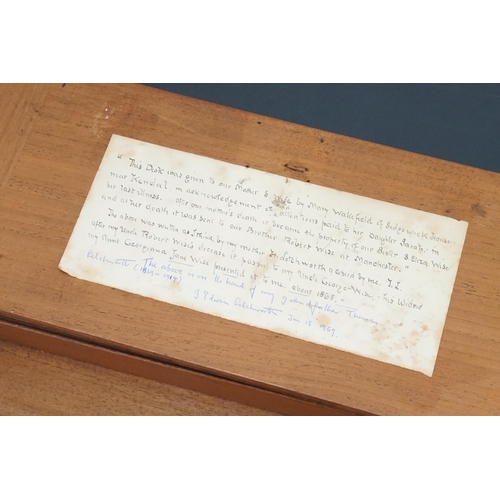 "This Desk was given to our Mother E. Wise by Mary Wakefield of Sedgewick House
near Kendal, in acknowledgement of attentions paid to her Daughter Sarah, in
her last illness. after our mother's death it became the property of our Sister E Eliza Wise
and at her death it was sent to our Brother Robert Wise at Manchester."
The above was written as I think by my mother Eo doth worth a card by me. T.E.
after my Uncle Robert Wise's decease it passed to my Uncle George Wise, his Widow
my Aunt Georgiana Jane Wise presented it to me about 1885."
The above is in the hand of my Grandfather Thomas
(1849-1917)
J Edwin Jan 18 1969.